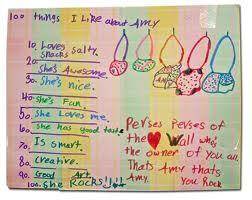 100 things I Like about Amy
10. Loves
snacks salty.
20. she's Awesome.
30. She's nice.
40. she's Fun.
50. she Loves me.
60. she has good taste
70. Is smart.
80. creative.
90. Good Art
100. She Rocks!!!!
Perses Perses of
the Wall who's
the owner of you all.
Thats Amy thats
Amy. You Rock